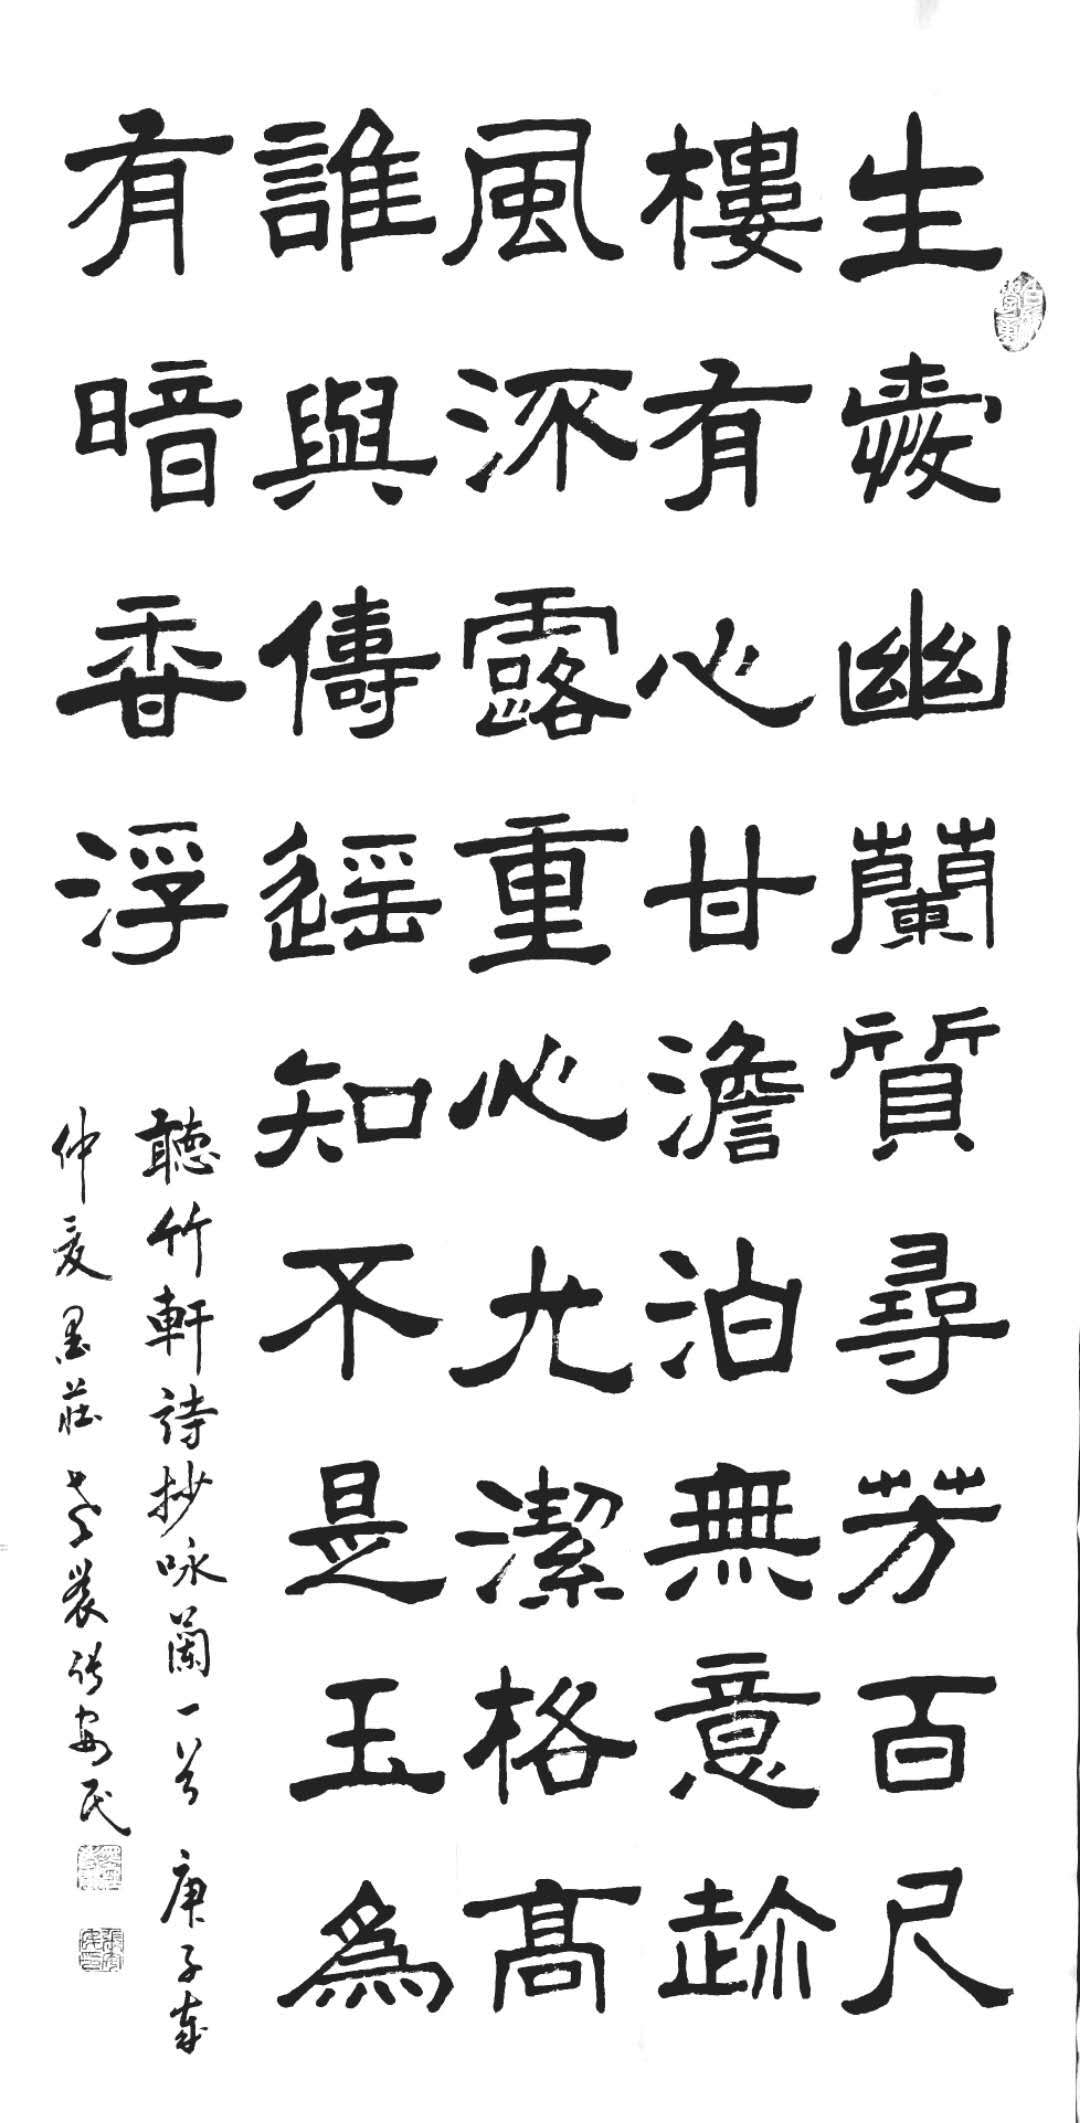 生愛幽蘭質尋芳百尺
樓有心甘澹泊無意趂
風㳅露重心尤潔格高
誰與儔遥知不是玉為
有暗香浮
聽竹軒詩抄咏蘭一首 庚子年
仲夏墨莊老農張安民